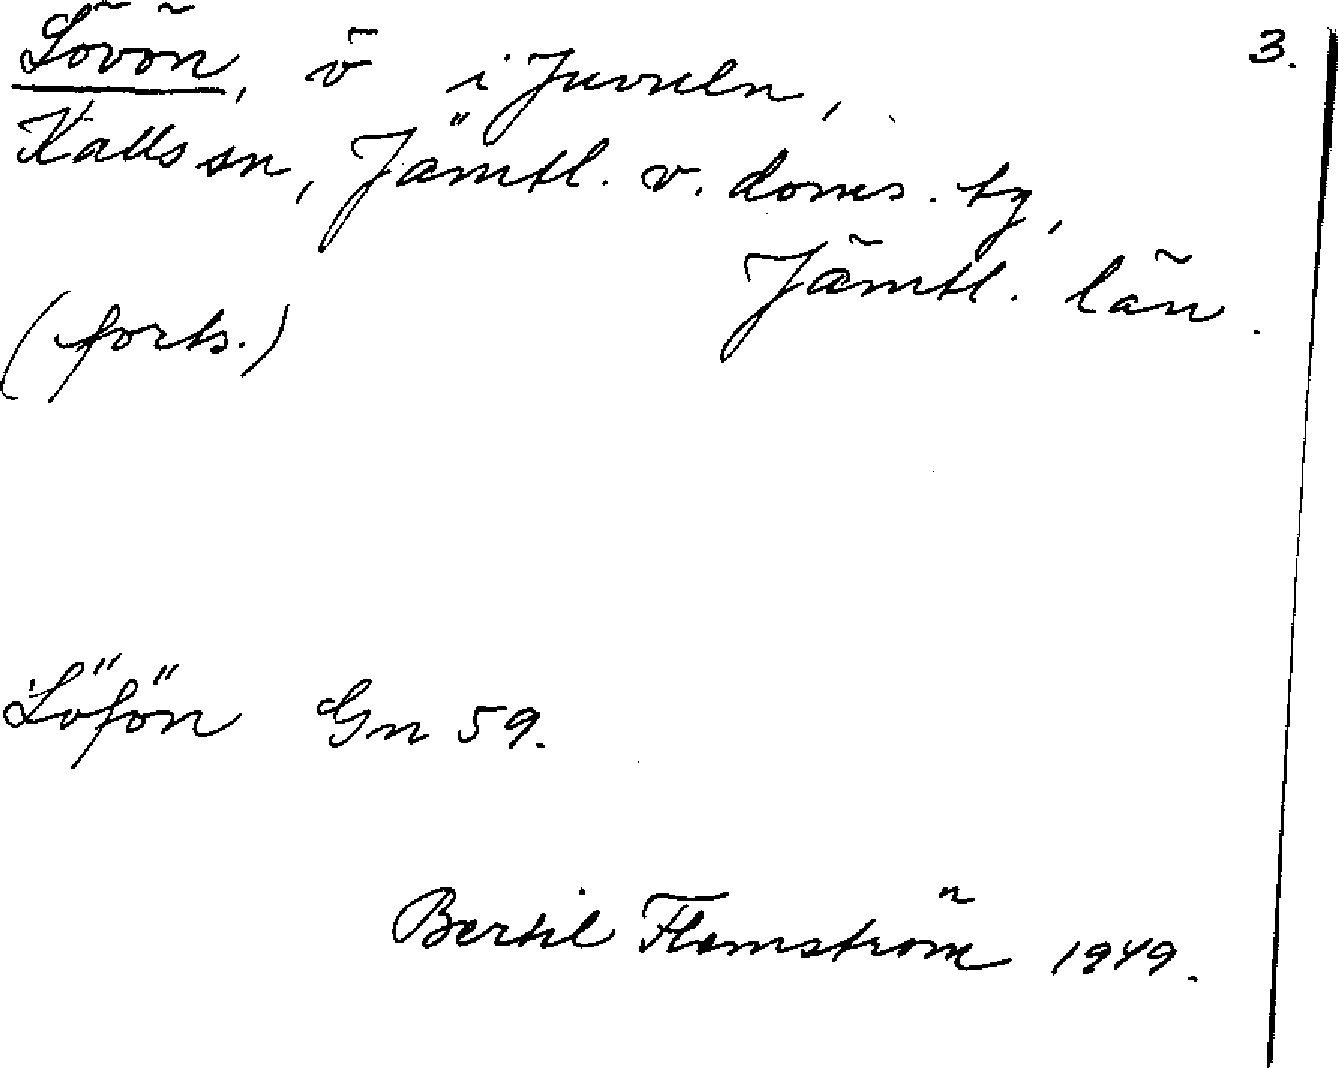 Lövön, ö i Juvuln, 3.
Kalls sn, Jämtl. v. doms. tg,
Jämtl. län.
(forts.)
Löfön Gn 59.
Bertil Flemström 1949.